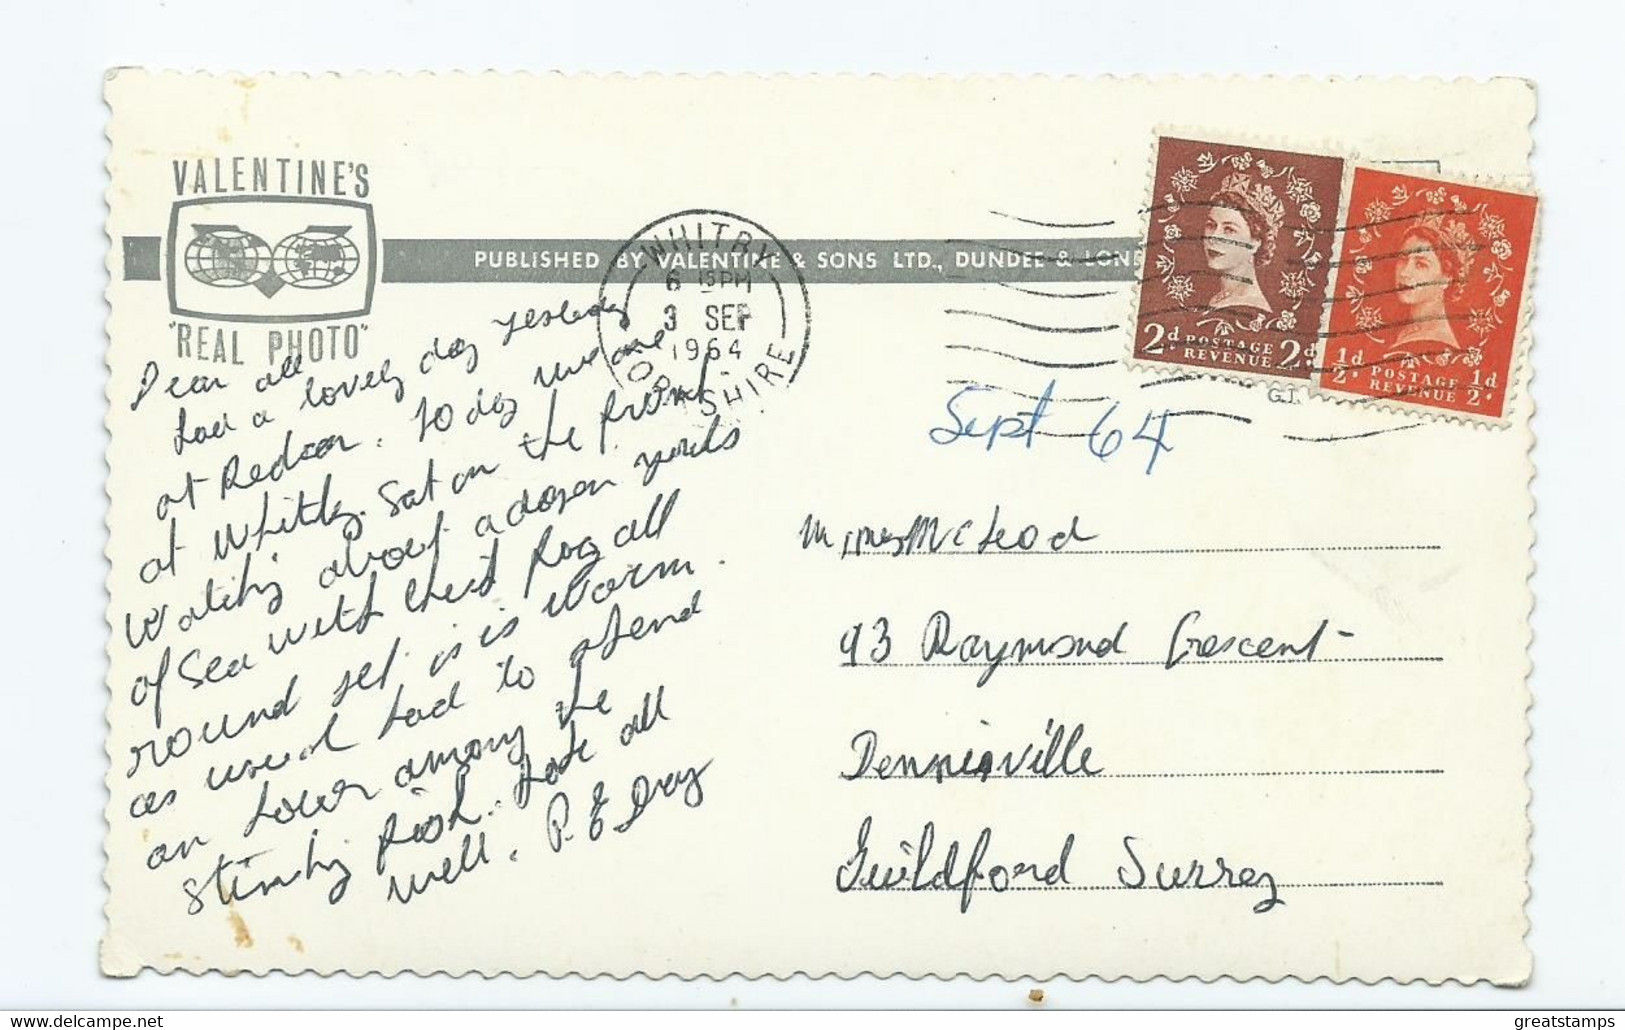 VALENTINE'S
"REAL PHOTO"
PUBLISHED BY VALENTINE & SONS LTD., DUNDEE & LOND
WHITBY
6 15 PM
3 SEP
1964
YORKSHIRE
2d POSTAGE REVENUE 2d.
½d. POSTAGE REVENUE ½d.
Sept 64
Dear all
had a lovely day yesterday
at Redcar. To day we are
at Whitby. Sat on the front
about a dozen yards
of Sea with Chest Fog all
round yet is is warm.
as usual had to spend
an hour among the
Stinking fish. Hope all
well. P. & E Dray
McLeod
93 Raymond Crescent
Dennisville
Guildford Surrey
greatstamps